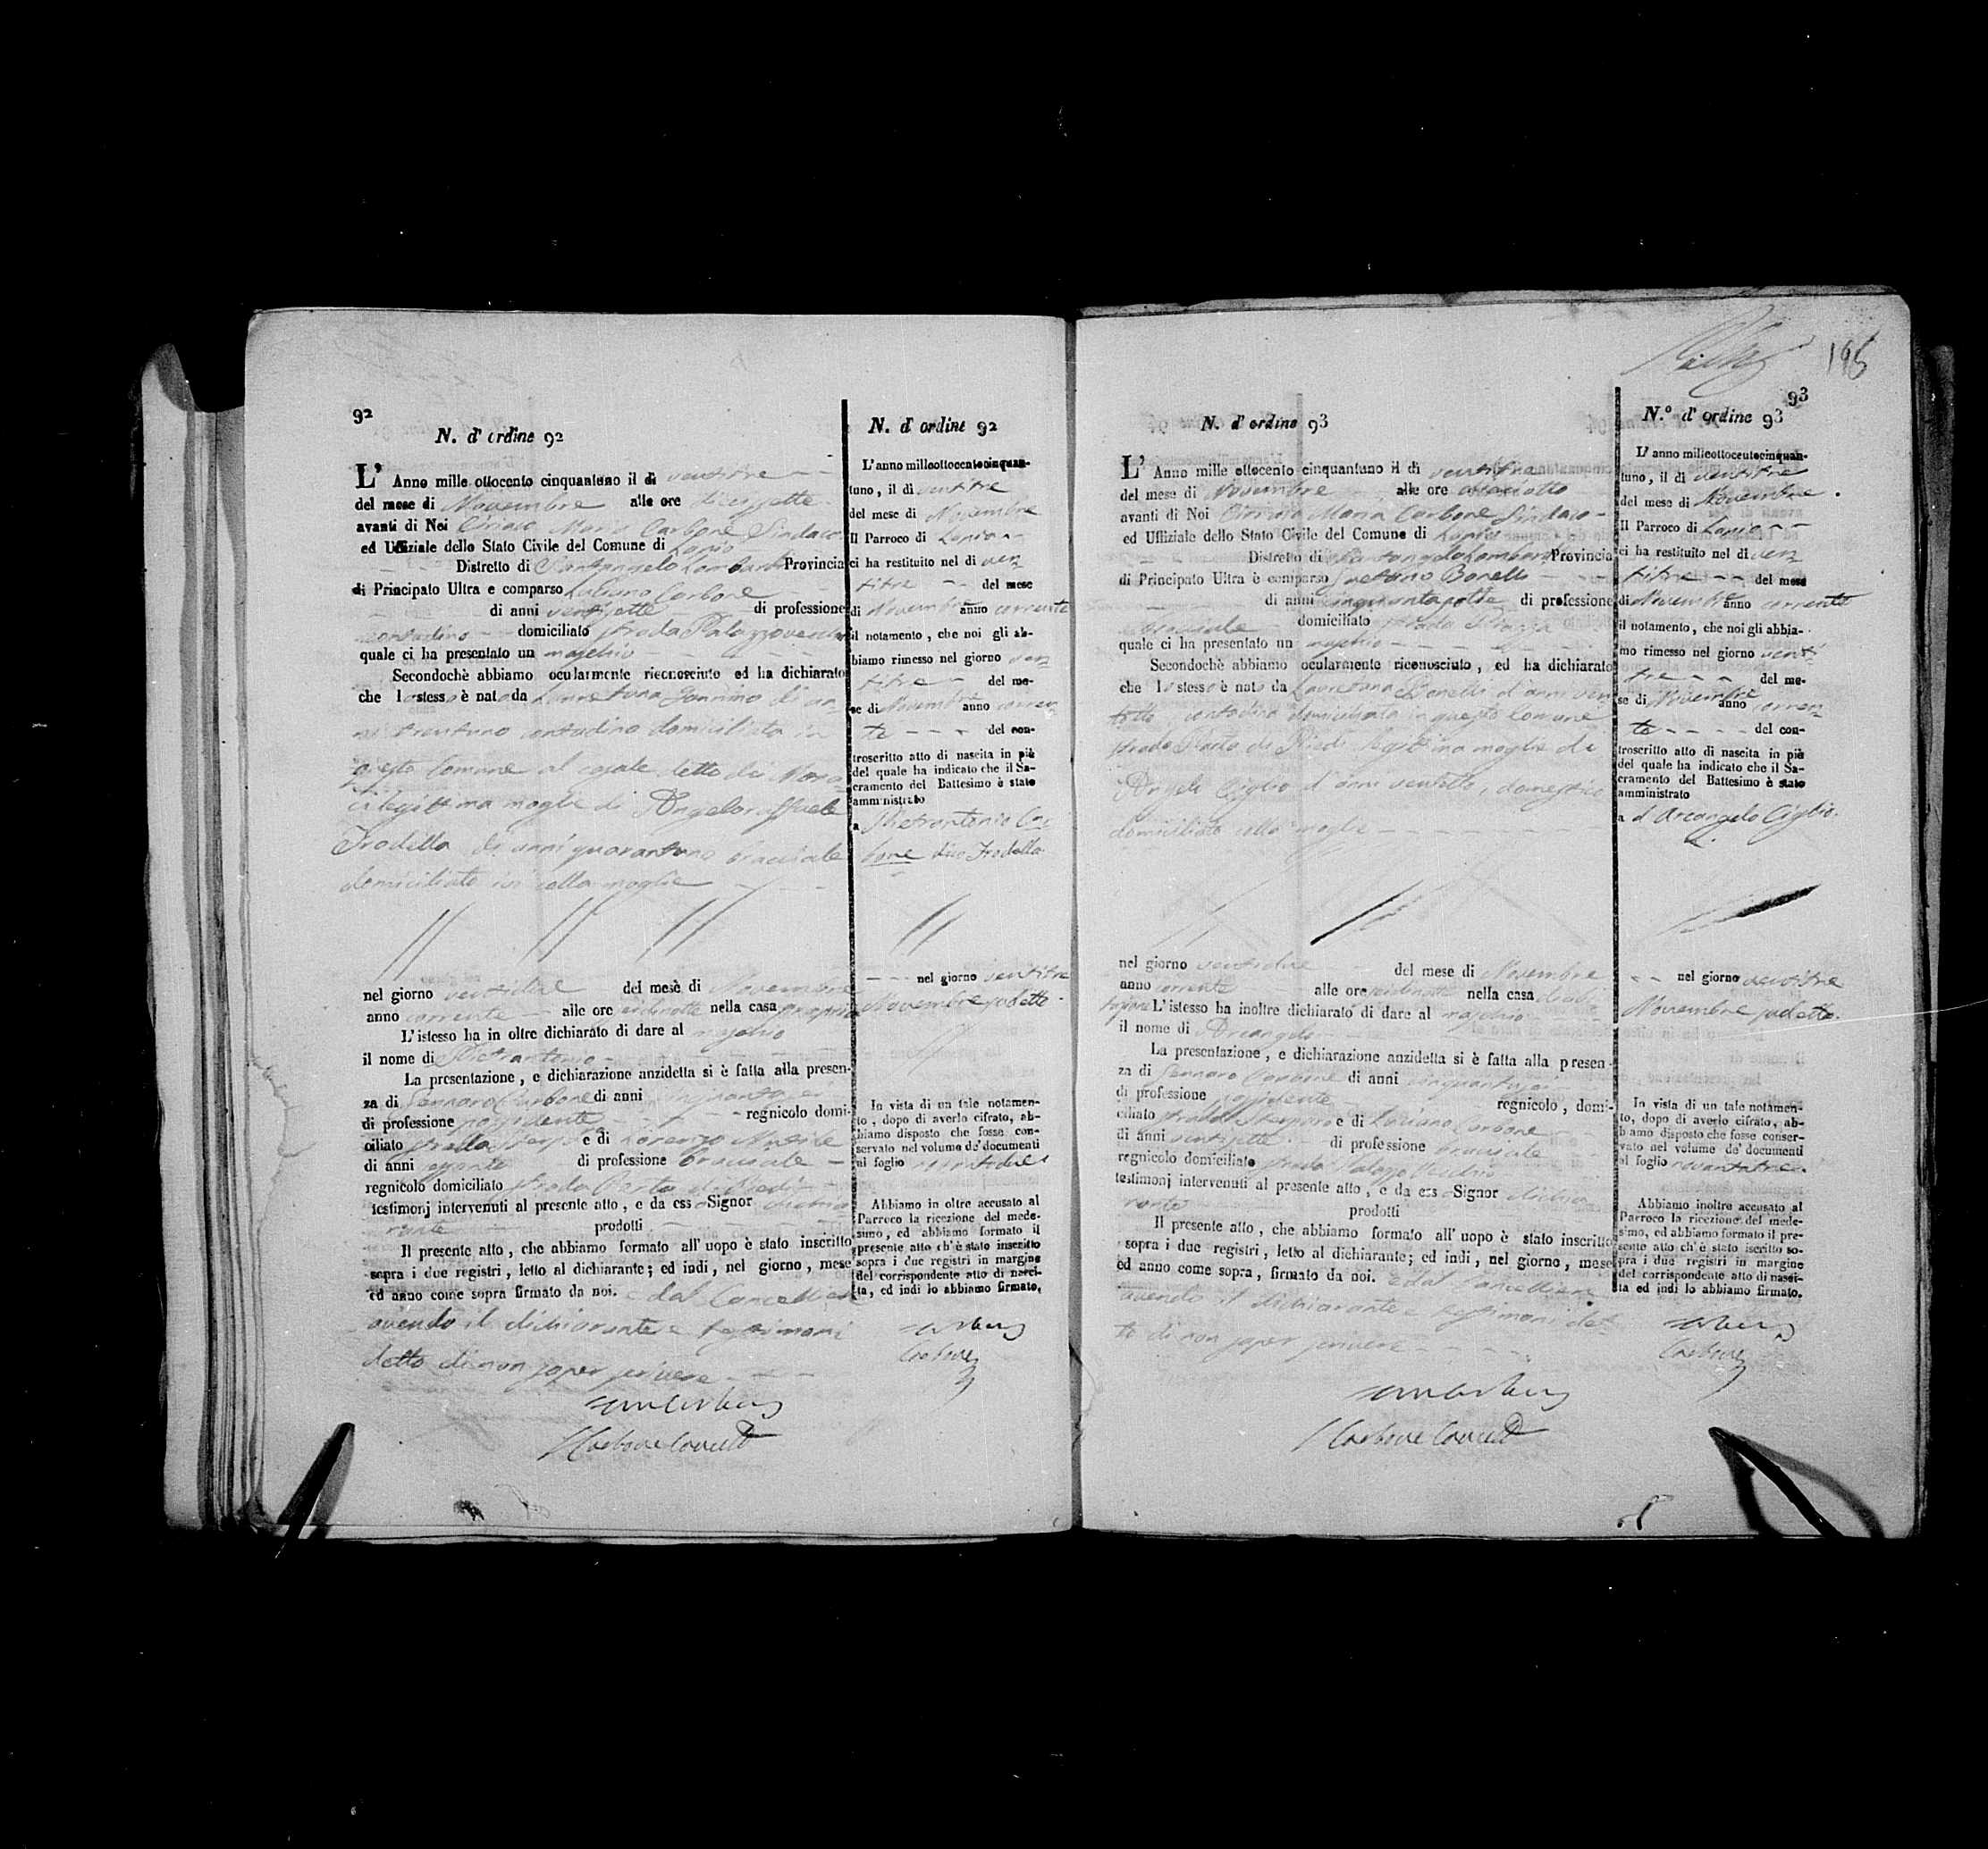 92
N. d' ordine 92
L' Anno mille ottocento cinquantuno il dì ventitre
del mese di Novembre alle ore diciassette
avanti di Noi Ciriaco Maria Carbone Sindaco
ed Uffiziale dello Stato Civile del Comune di Lapio
Distretto di Santangelo Lombardi Provincia
di Principato Ultra e comparso Luciano Carbone
di anni ventisette di professione
contadino domiciliato strada Palazzovecchio
quale ci ha presentato un maschio
Secondochè abbiamo ocularmente riconosciuto ed ha dichiarato
che lo stesso è nato da Lauretana Iannino di an-
ni trentuno contadina domiciliata in
questo Comune al casale detto dei
legittima moglie di Angeloraffaele
Trodella di anni quarantuno bracciale
domiciliato ivi colla moglie
nel giorno ventidue del mesè di Novembre
anno corrente alle ore nella casa propria
L'istesso ha in oltre dichiarato di dare al maschio
il nome di Pietrantonio
La presentazione, e dichiarazione anzidetta si è fatta alla presen-
za di Gennaro Carbone di anni cinquantasei
di professione possidente regnicolo domi-
ciliato strada e di Lorenzo
di anni sessanta di professione bracciale
regnicolo domiciliato strada Porta di Piedi
testimonj intervenuti al presente atto, e da esso Signor dichia
rante prodotti
Il presente atto, che abbiamo formato all' uopo è stato inscritto
sopra i due registri, letto al dichiarante; ed indi, nel giorno, mese
ed anno come sopra firmato da noi. e dal Cancelliere
avendo il dichiarante e testimoni
detto di non saper scrivere
Carbone
N. d' ordine 92
L'anno milleottocentocinquan-
tuno, il dì ventitre
del mese di Novembre
Il Parroco di Lapio
ci ha restituito nel dì ven-
titre del mese
di Novembre anno corrente
il notamento, che noi gli ab-
biamo rimesso nel giorno ven-
titre del me-
se di Novembre anno corren-
te del con-
troscritto atto di nascita in piè
del quale ha indicato che il Sa-
cramento del Battesimo è stato
amministrato
a Pietrantonio Car-
bone Trodella
nel giorno ventitre
Novembre sudetto
In vista di un tale notamen-
to, dopo di averlo cifrato, ab-
biamo disposto che fosse con-
servato nel volume de' documenti
al foglio novantadue
Abbiamo in oltre accusato al
Parroco la ricezione del mede-
simo, ed abbiamo formato il
presente atto ch' è stato inscritto
sopra i due registri in margine
del corrispondente atto di nasci-
ta, ed indi lo abbiamo firmato.
Carbone
195
93
N. d' ordine 93
L' Anno mille ottocento cinquantuno il dì ventitre
del mese di Novembre alle ore diciotto
avanti di Noi Ciriaco Maria Carbone Sindaco
ed Uffiziale dello Stato Civile del Comune di Lapio
Distretto di Santangelo Lombardi Provincia
di Principato Ultra è comparso Gaetano Bonelli
di anni cinquantasette di professione
bracciale domiciliato strada
quale ci ha presentato un maschio
Secondochè abbiamo ocularmente riconosciuto, ed ha dichiarato
che lo stesso è nato da Lauretana Bonelli d'anni ven-
totto, contadina domiciliata in questo Comune
strada Porta di Piedi legittima moglie di
Angelo Ciglio d'anni ventotto, domestico
domiciliato colla moglie
nel giorno ventidue del mese di Novembre
anno corrente alle ore nella casa
L'istesso ha inoltre dichiarato di dare al maschio
il nome di Arcangelo
La presentazione, e dichiarazione anzidetta si è fatta alla presen-
za di Gennaro Carbone di anni cinquantasei
di professione possidente regnicolo, domi-
ciliato strada e di Luciano Carbone
di anni ventisette di professione bracciale
regnicolo domiciliato strada Palazzo Vecchio
testimonj intervenuti al presente atto, e da esso Signor dichia
rante prodotti
Il presente atto, che abbiamo formato all' uopo è stato inscritto
sopra i due registri, letto al dichiarante; ed indi, nel giorno, mese
ed anno come sopra, firmato da noi. e dal Cancelliere
avendo il dichiarante e testimoni det-
to di non saper scrivere
Carbone
N.° d' ordine 93
L' anno milleottocentocinquan-
tuno, il dì ventitre
del mese di Novembre
Il Parroco di Lapio
ci ha restituito nel dì ven-
titre del mese
di Novembre anno corrente
il notamento, che noi gli abbia-
mo rimesso nel giorno venti-
tre del me-
se di Novembre anno corren-
te del con-
troscritto atto di nascita in piè
del quale ha indicato che il Sa-
cramento del Battesimo è stato
amministrato
a d' Arcangelo Ciglio
nel giorno ventitre
Novembre sudetto
In vista di un tale notamen-
to, dopo di averlo cifrato, ab-
biamo disposto che fosse conser-
vato nel volume de' documenti
al foglio novantatre
Abbiamo inoltre accusato al
Parroco la ricezione del mede-
simo, ed abbiamo formato il pre-
sente atto ch' è stato iscritto so-
pra i due registri in margine
del corrispondente atto di nasci-
ta ed indi lo abbiamo firmato.
Carbone